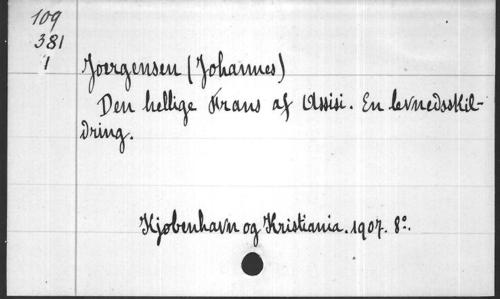 109
381
1
Joergensen (Johannes)
Den hellige Frans af Assisi. En levnedsskil-
dring.
Kjöbenhavn og Kristiania. 1907. 8º.